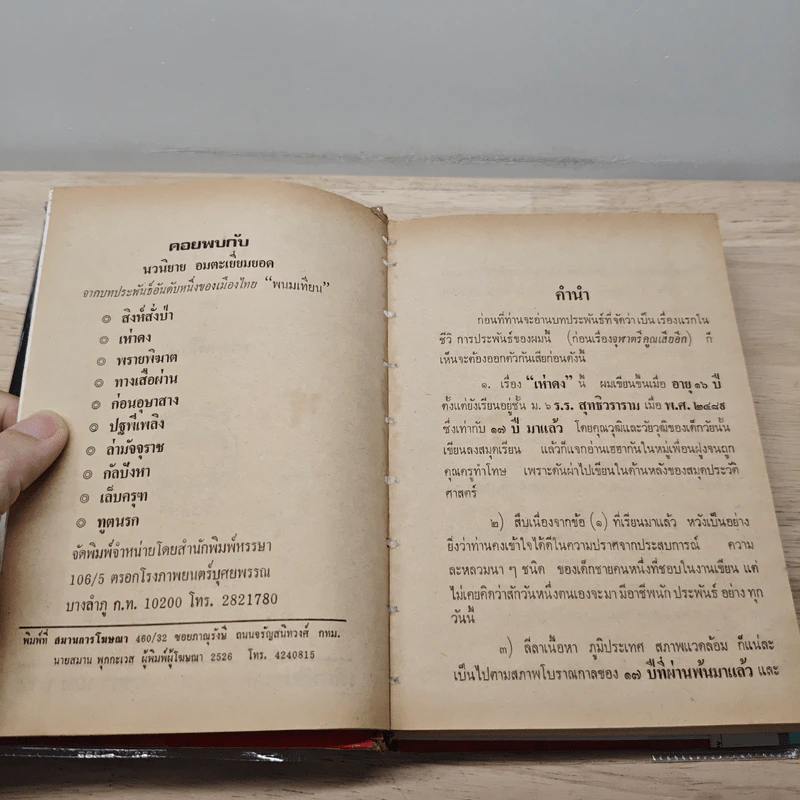 คอยพบกับ
นวนิยาย อมตะเยี่ยมยอด
จากบทประพันธ์อันดับหนึ่งของเมืองไทย “พนมเทียน”
◎ สิงห์สั่งป่า
◎ เห่าดง
◎ พรายพิฆาต
◎ ทางเสือผ่าน
◎ ก่อนอุษาสาง
◎ ปฐพีเพลิง
◎ ล่ามัจจุราช
◎ กัลปังหา
◎ เล็บครุฑ
◎ ทูตนรก
จัดพิมพ์จำหน่ายโดยสำนักพิมพ์หรรษา
106/5 ตรอกโรงภาพยนตร์บุศยพรรณ
บางลำภู ก.ท. 10200 โทร. 2821780
พิมพ์ที่ สมานการโฆษณา 460/32 ซอยภาณุรังษี ถนนจรัญสนิทวงศ์ กทม.
นายสมาน พุกกะเวส ผู้พิมพ์ผู้โฆษณา 2526 โทร. 4240815
คำนำ
ก่อนที่ท่านจะอ่านบทประพันธ์ที่จัดว่าเป็นเรื่องแรกใน
ชีวิ การประพันธ์ของผมนี้ (ก่อนเรื่องจุฬาตรีคูณเสียอีก) ก็
เห็นจะต้องออกตัวกันเสียก่อนดังนี้
๑. เรื่อง “เห่าดง” นี้ ผมเขียนขึ้นเมื่อ อายุ ๑๖ ปี
ตั้งแต่ยังเรียนอยู่ชั้น ม. ๖ ร.ร. สุทธิวราราม เมื่อ พ.ศ. ๒๔๘๙
ซึ่งเท่ากับ ๑๗ ปี มาแล้ว โดยคุณวุฒิและวัยวุฒิของเด็กวัยนั้น
เขียนลงสมุดเรียน แล้วก็แจกอ่านเฮฮากันในหมู่เพื่อนฝูงจนถูก
คุณครูทำโทษ เพราะดันผ่าไปเขียนในด้านหลังของสมุดประวัติ
ศาสตร์
๒) สืบเนื่องจากข้อ (๑) ที่เรียนมาแล้ว หวังเป็นอย่าง
ยิ่งว่าท่านคงเข้าใจได้ดีในความปราศจากประสบการณ์ ความ
ละหลวมนา ๆ ชนิด ของเด็กชายคนหนึ่งที่ชอบในงานเขียน แต่
ไม่เคยคิดว่าสักวันหนึ่งตนเองจะมา มีอาชีพนัก ประพันธ์ อย่าง ทุก
วันนี้
๓) ลีลาเนื้อหา ภูมิประเทศ สภาพแวดล้อม ก็แน่ละ
เป็นไปตามสภาพโบราณกาลของ ๑๗ ปีที่ผ่านพ้นมาแล้ว และ